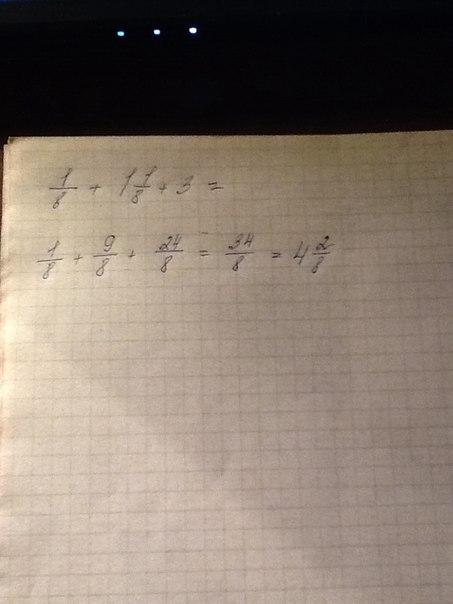 1/8 + 1 1/8 + 3 =
1/8 + 9/8 + 24/8 = 34/8 = 4 2/8